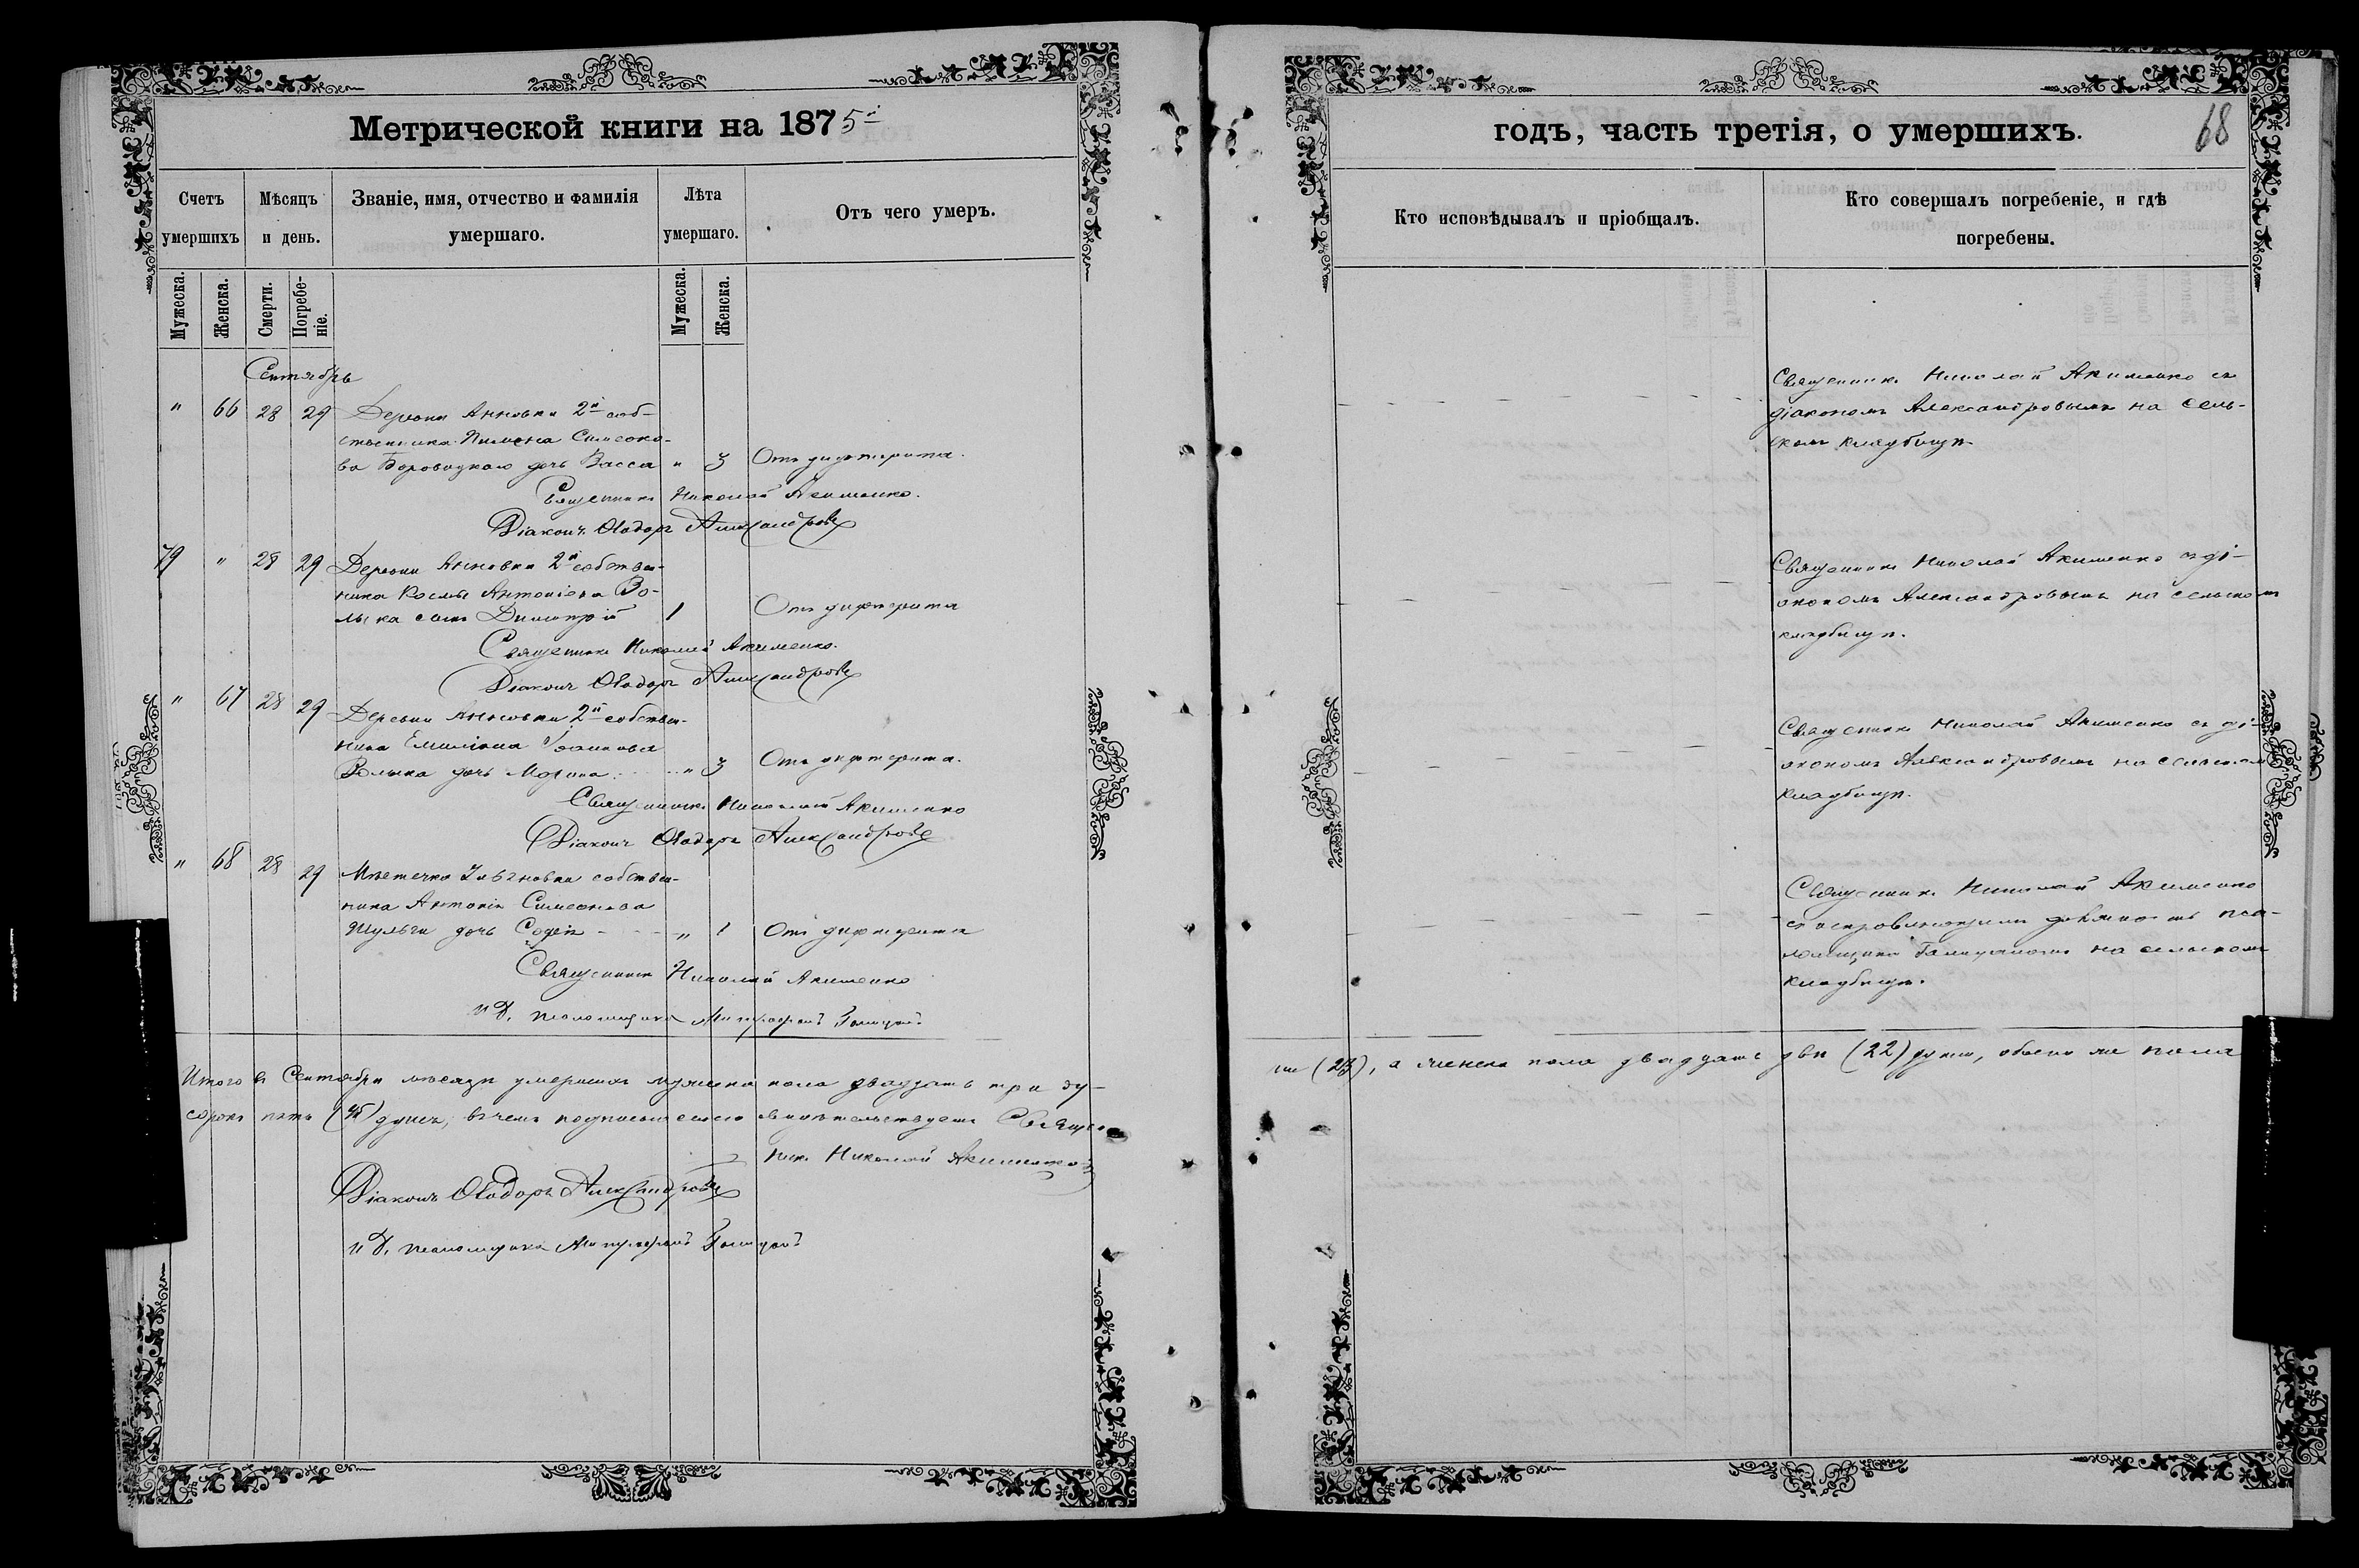 Метрической книги на 1875й
годъ, часть третія, о умершихъ.
68
Счетъ умершихъ
Мѣсяцъ и день.
Званіе, имя, отчество и фамилія умершаго.
Лѣта умершаго.
Отъ чего умеръ.
Кто исповѣдывалъ и пріобщалъ.
Кто совершалъ погребеніе, и гдѣ погребены.
Мужеска.
Женска.
Смерти.
Погребе-
ніе.
Мужеска.
Женска.
Сентябрь
" 66 28 29 Деревни Анновки 2й соб-
ственника Пимена Симеоно-
ва Боровицкаго дочь Васса " 3 Отъ дифтерита.
Священникъ Николай Акименко съ
діакономъ Александровымъ на сель-
скомъ кладбищѣ
Священникъ Николай Акименко.
Діаконъ Ѳеодоръ Александровъ
79 " 28 29 Деревни Анновки 2й собствен-
ника Космы Антоніева Во-
лыка сынъ Димитрій 1 Отъ дифтерита
Священникъ Николай Акименко съ ді-
акономъ Александровымъ на сельскомъ
кладбищѣ.
Священникъ Николай Акименко.
Діаконъ Ѳеодоръ Александровъ
" 67 28 29 Деревни Анновки 2й собствен-
ника Емиліана Іоаннова
Волыка дочь Марина " 3 Отъ дифтерита.
Священникъ Николай Акименко съ ді-
акономъ Александровымъ на сельскомъ
кладбищѣ.
Священникъ Николай Акименко
Діаконъ Ѳеодоръ Александровъ
" 68 28 29 Мѣстечка собствен-
ника Антонія Симеонова
Шульги дочь Софія " 1 Отъ дифтерита
Священникъ Николай Акименко
съ исправляющимъ должность пса-
ломщика на сельскомъ
кладбищѣ.
Священникъ Николай Акименко
И Д. псаломщика Митрофанъ
Итого въ Сентябрѣ мѣсяцѣ умершихъ мужеска пола двадцать три ду-
ши (23), а женска пола двадцать двѣ (22) души, обоего же пола
сорокъ пять (45) душъ, въ чемъ подписью своею свидѣтельствуетъ Священ-
никъ Николай Акименко
Діаконъ Ѳеодоръ Александровъ
И Д. псаломщика Митрофанъ